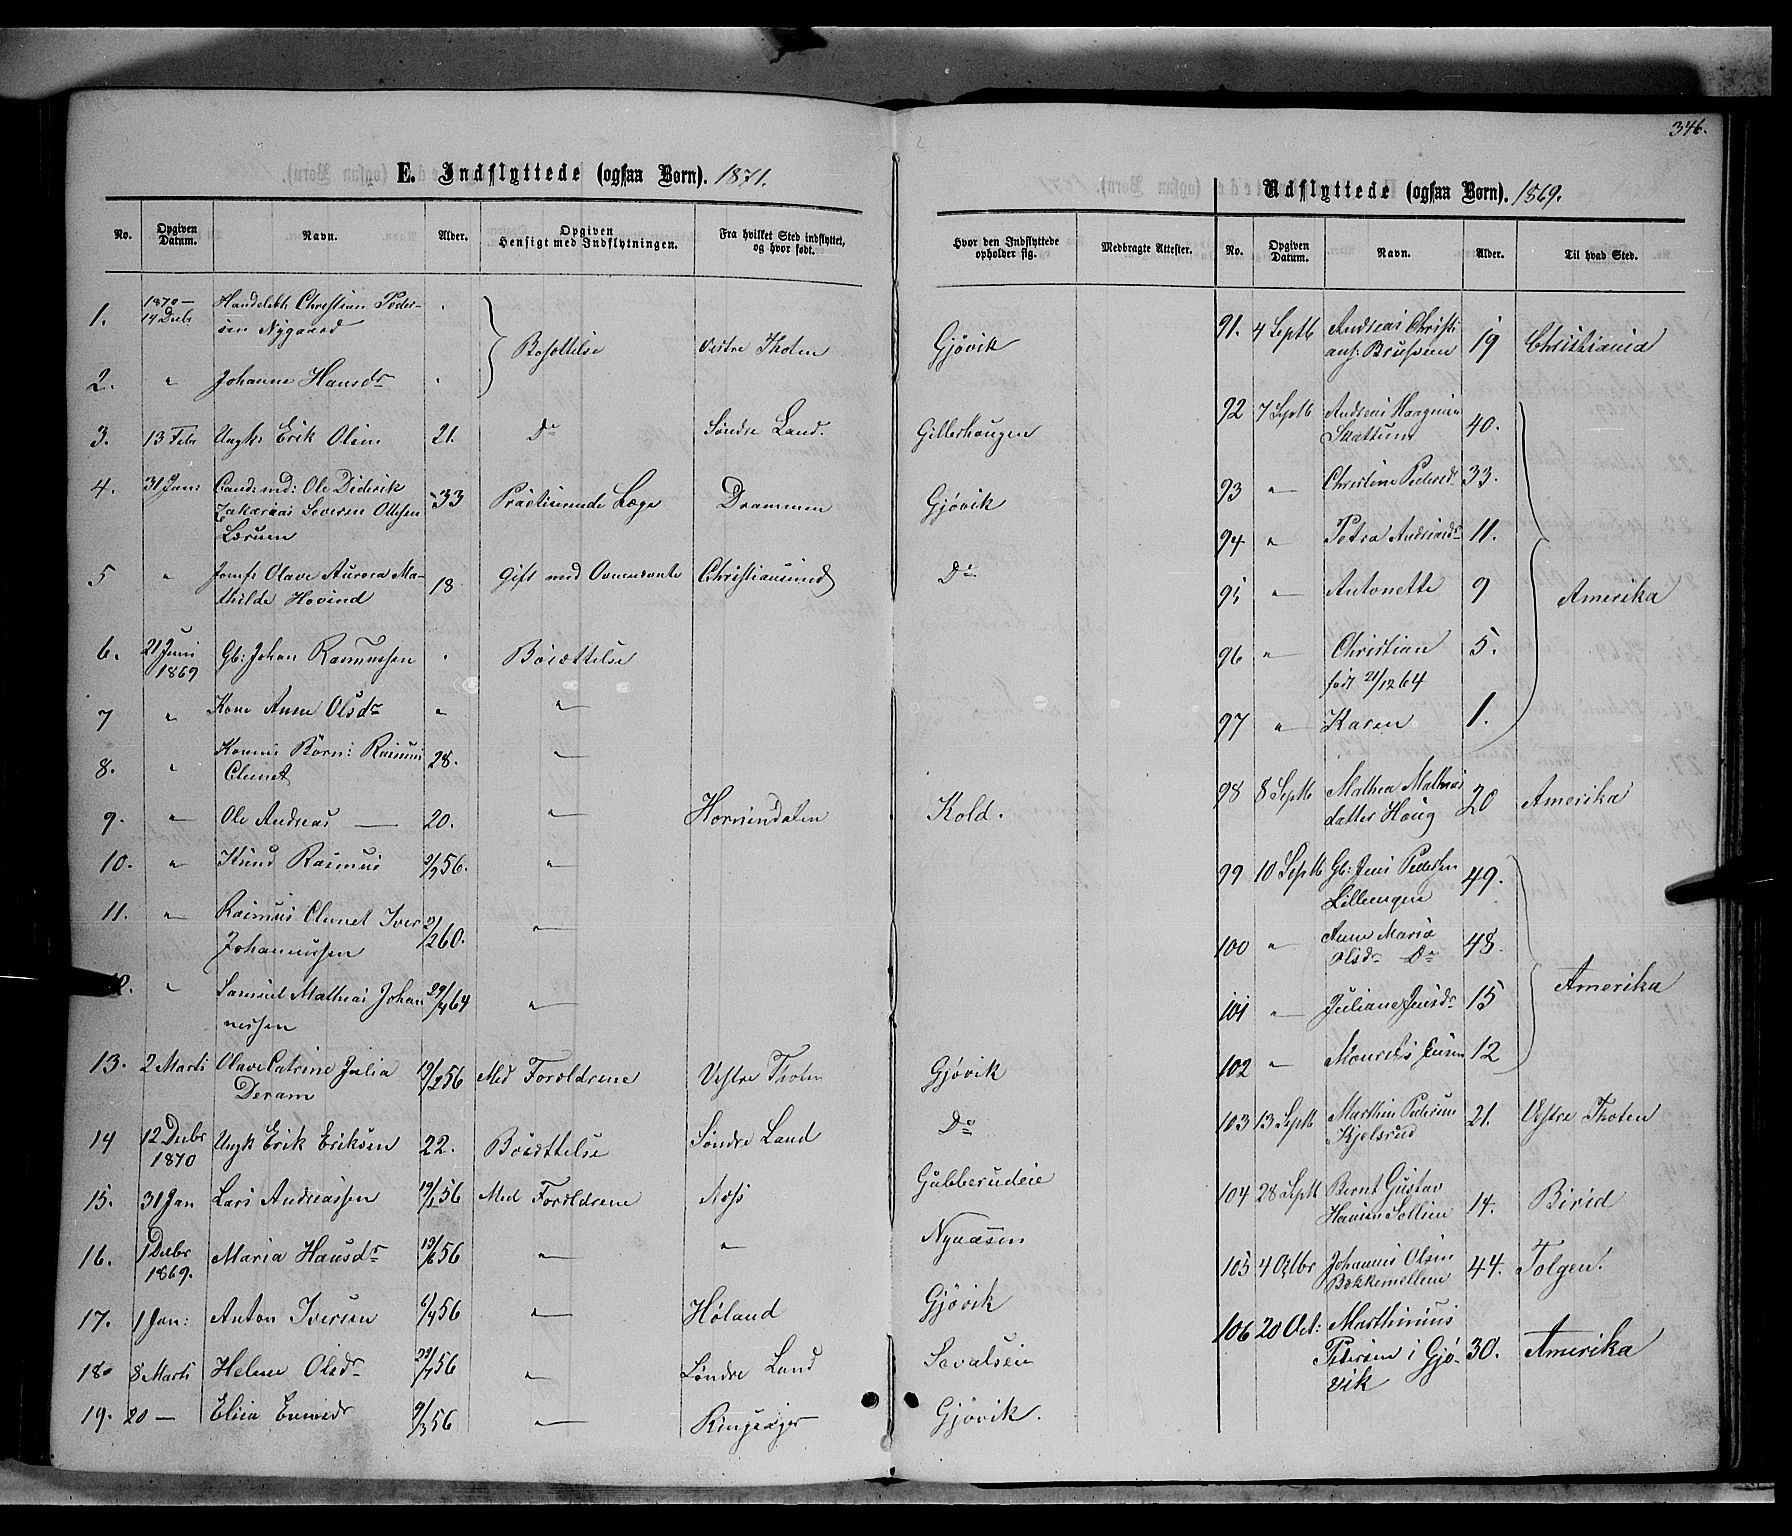 346.
E. Indflyttede (ogsaa Børn). 1871.
No. Opgiven Datum. Navn. Alder. Opgiven Hensigt med Indflytningen. Fra hvilket Sted indflyttet, og hvor født. Hvor den Indflyttede opholder sig. Medbragte Attester.
1. 1870 — 14 Decbr Christian Peder-
sen Nygaard Bosættelse Vestre Thoten Gjøvik
2. " Johanne Hansdr
3. 13 Febr Ungk: Erik Olsen 21. Do Søndre Land. Gillerhaugen
4. 31 Jan: Cand: med: Ole Diderik
Zakarias Severin Ottesen 33 Practiserende Læge Drammen Gjøvik
Lærum
5 " Jomfr Olave Aurora Ma-
thilde Hovind 18 Gift med Ovennævnte Christiansund Do
6. 21 Juni 1869 Gb: Johan Rasmussen Bosættelse
7 " Kone Anne Olsdr " "
8. " Børn: Rasmus
28. "
9. " Ole Andreas — 20. " Hornindalen Kold.
10. " Knud Rasmus 56. "
11. " Rasmus Iver
Johannessen 60. "
12. " Samuel Mathias Johan
nessen 29/4 64 "
13. 2 Marti Olave Catrine Julia 19/2 56 Med Forældrene Vestre Thoten Gjøvik
Deram
14 12 Decbr 1870 Ungk Erik Eriksen 22. Bosættelse Søndre Land Do
15. 31 Jan Lars Andreassen 56 Med Forældrene Næss Gubberudeie
16. 1 Decbr 1869. Maria Hansdr 56 " " Nyaasen
17. 1 Jan: Anton Iversen 6/4 56 " Høland Gjøvik
18. 8 Marti Helene Olsdr 56 " Søndre Land Sevalseie
19. 20 — Elisa 56 " Ringsager Gjøvik.
Udflyttede (ogsaa Børn). 1869.
No. Opgiven Datum. Navn. Alder. Til hvad Sted.
91. 4 Septb Andreas Christi
ans: 19 Christiania
92 7 Septb Andreas
Skattum 40.
93 " Christine Pedersd 33.
94 " Petra Andreasdr 11.
95 " Antonette 9 Amerika
96 " Christian 5.
født 21/12 64
97 " Karen 1.
98 8 Septb Mathea Mathias
datter Houg 20 Amerika
99 10 Septb Gb: Jens Pedersen 49.
Lilleengen
100 " Anne Maria
Olsdr Do 48.
101 " Juliane Jensdr 15 Amerika
102 " Mouritz Jensen 12
103 13 Septb Marthin Pedersen
Kjelsrud 21. Vestre Thoten
104 28 Septb Bernt Gustav
Hansen Sollien 14. Birid
105 4 Octbr Johannes Olsen
Bækkemellem 44. Tolgen.
106 20 Oct: Marthinius
Pedersen i Gjø- 30. Amerika
vik